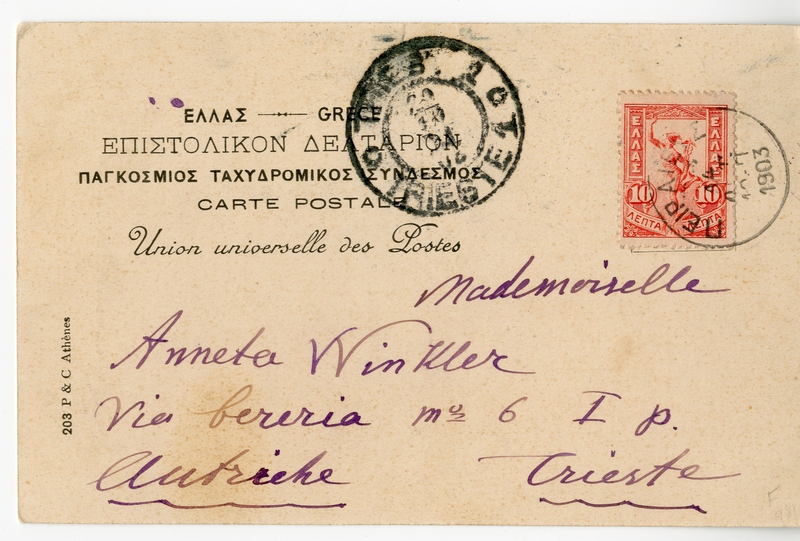 ΕΛΛΑΣ — GRÈCE
ΕΠΙΣΤΟΛΙΚΟΝ ΔΕΛΤΑΡΙΟΝ
ΠΑΓΚΟΣΜΙΟΣ ΤΑΧΥΔΡΟΜΙΚΟΣ ΣΥΝΔΕΣΜΟΣ
CARTE POSTALE
Union universelle des Postes
TRIESTE
TRIEST
ΕΛΛΑΣ
ΕΛΛΑΣ
10 10
ΛΕΠΤΑ ΛΕΠΤΑ
1903
Mademoiselle
Anneta Winkler
Via bereria
6 I p.
Autriche Trieste
203 P & C Athènes